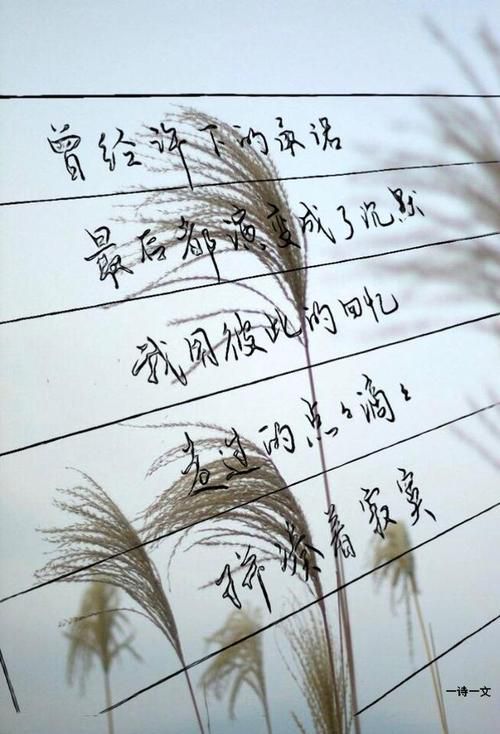 曾经许下的承诺
最后都演变成了沉默
我用彼此的回忆
走过的点々滴々
拼凑着寂寞
一诗一文